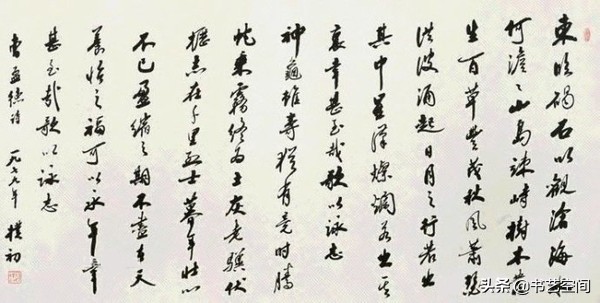 東臨碣石以觀滄海水
何澹々山島竦峙樹木叢
生百草豐茂秋風蕭瑟
洪波涌起日月之行若出
其中星漢燦爛若出其
裏幸甚至哉歌以詠志
神龜雖壽猶有竟時騰
蛇乘霧終為土灰老驥伏
櫪志在千里烈士暮年壯心
不已盈縮之期不盡在天
養怡之福可以永年幸
甚至哉歌以詠志
曹孟德詩 一九七九年 樸初
头条 @书艺空间